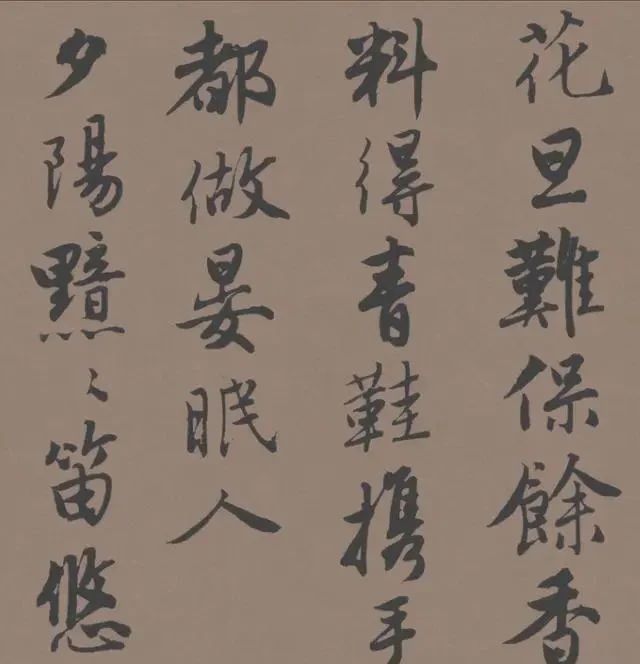 花旦難保餘香
料得青鞋攜手
都做晏眠人
夕陽黯〻笛悠